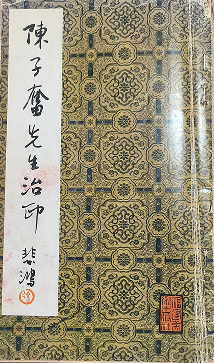 陳子奮先生治印
悲鴻